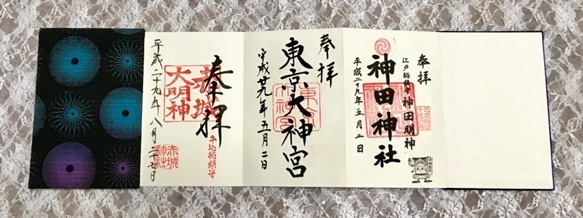 奉拝
江戸総鎮守 神田明神
神田神社
平成二十九年五月二日
奉拝
東京大神宮
平成廿九年五月二日
奉拝
赤城
大明神
牛込総鎮守
平成二十九年八月二十七日
赤城
神社